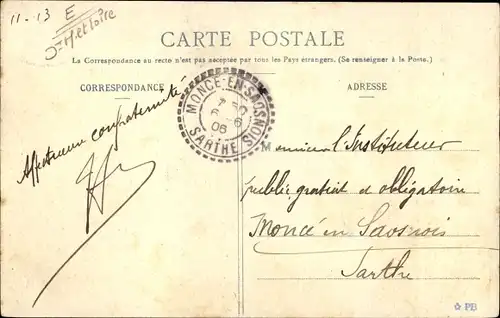 11-13 E
CARTE POSTALE
La Correspondance au recto n'est pas acceptée par tous les Pays étrangers. (Se renseigner à la Poste.)
CORRESPONDANCE
ADRESSE
MONCE-EN-SAOSNOIS
06
SARTHE
Affectueuse confraternité
Monsieur l'Instituteur
public gratuit & obligatoire
Moncé en Saosnois
Sarthe
PB